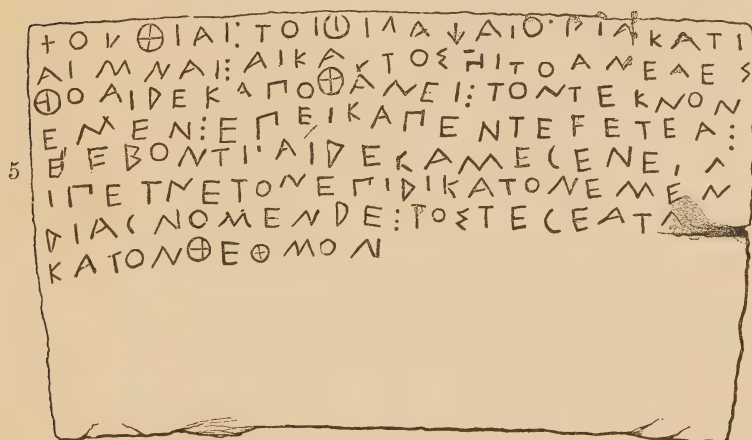 +ΟV⊕ΙΑΙ⁝ΤΟΙΦΙΛΑ↓ΑΙΟ·DΙΑΚΑΤΙ
ΑΙΜΝΑΙ⁝ΑΙΚΑVΤΟΣΗΙΤΟΑΝΕΛΕΣ
⊕ΟΑΙDΕΚΑΠΟ⊕ΑΝΕΙ⁝ΤΟΝΤΕΚΝΟΝ
ΕΜΕΝ⁝ΕΠΕΙΚΑΠΕΝΤΕFΕΤΕΑ⁝
5 ΕΕΒΟΝΤΙ·ΑΙDΕΚΑΜΕCΕΝΕ
ΙΠΕΤΝΕΤΟΝΕΠΙDΙΚΑΤΟΝΕΜΕΝ
DΙΑCΝΟΜΕΝDΕ⁝ΤΟΣΤΕCΕΑΤΑ
ΚΑΤΟΝ⊕Ε⊕ΜΟΝ